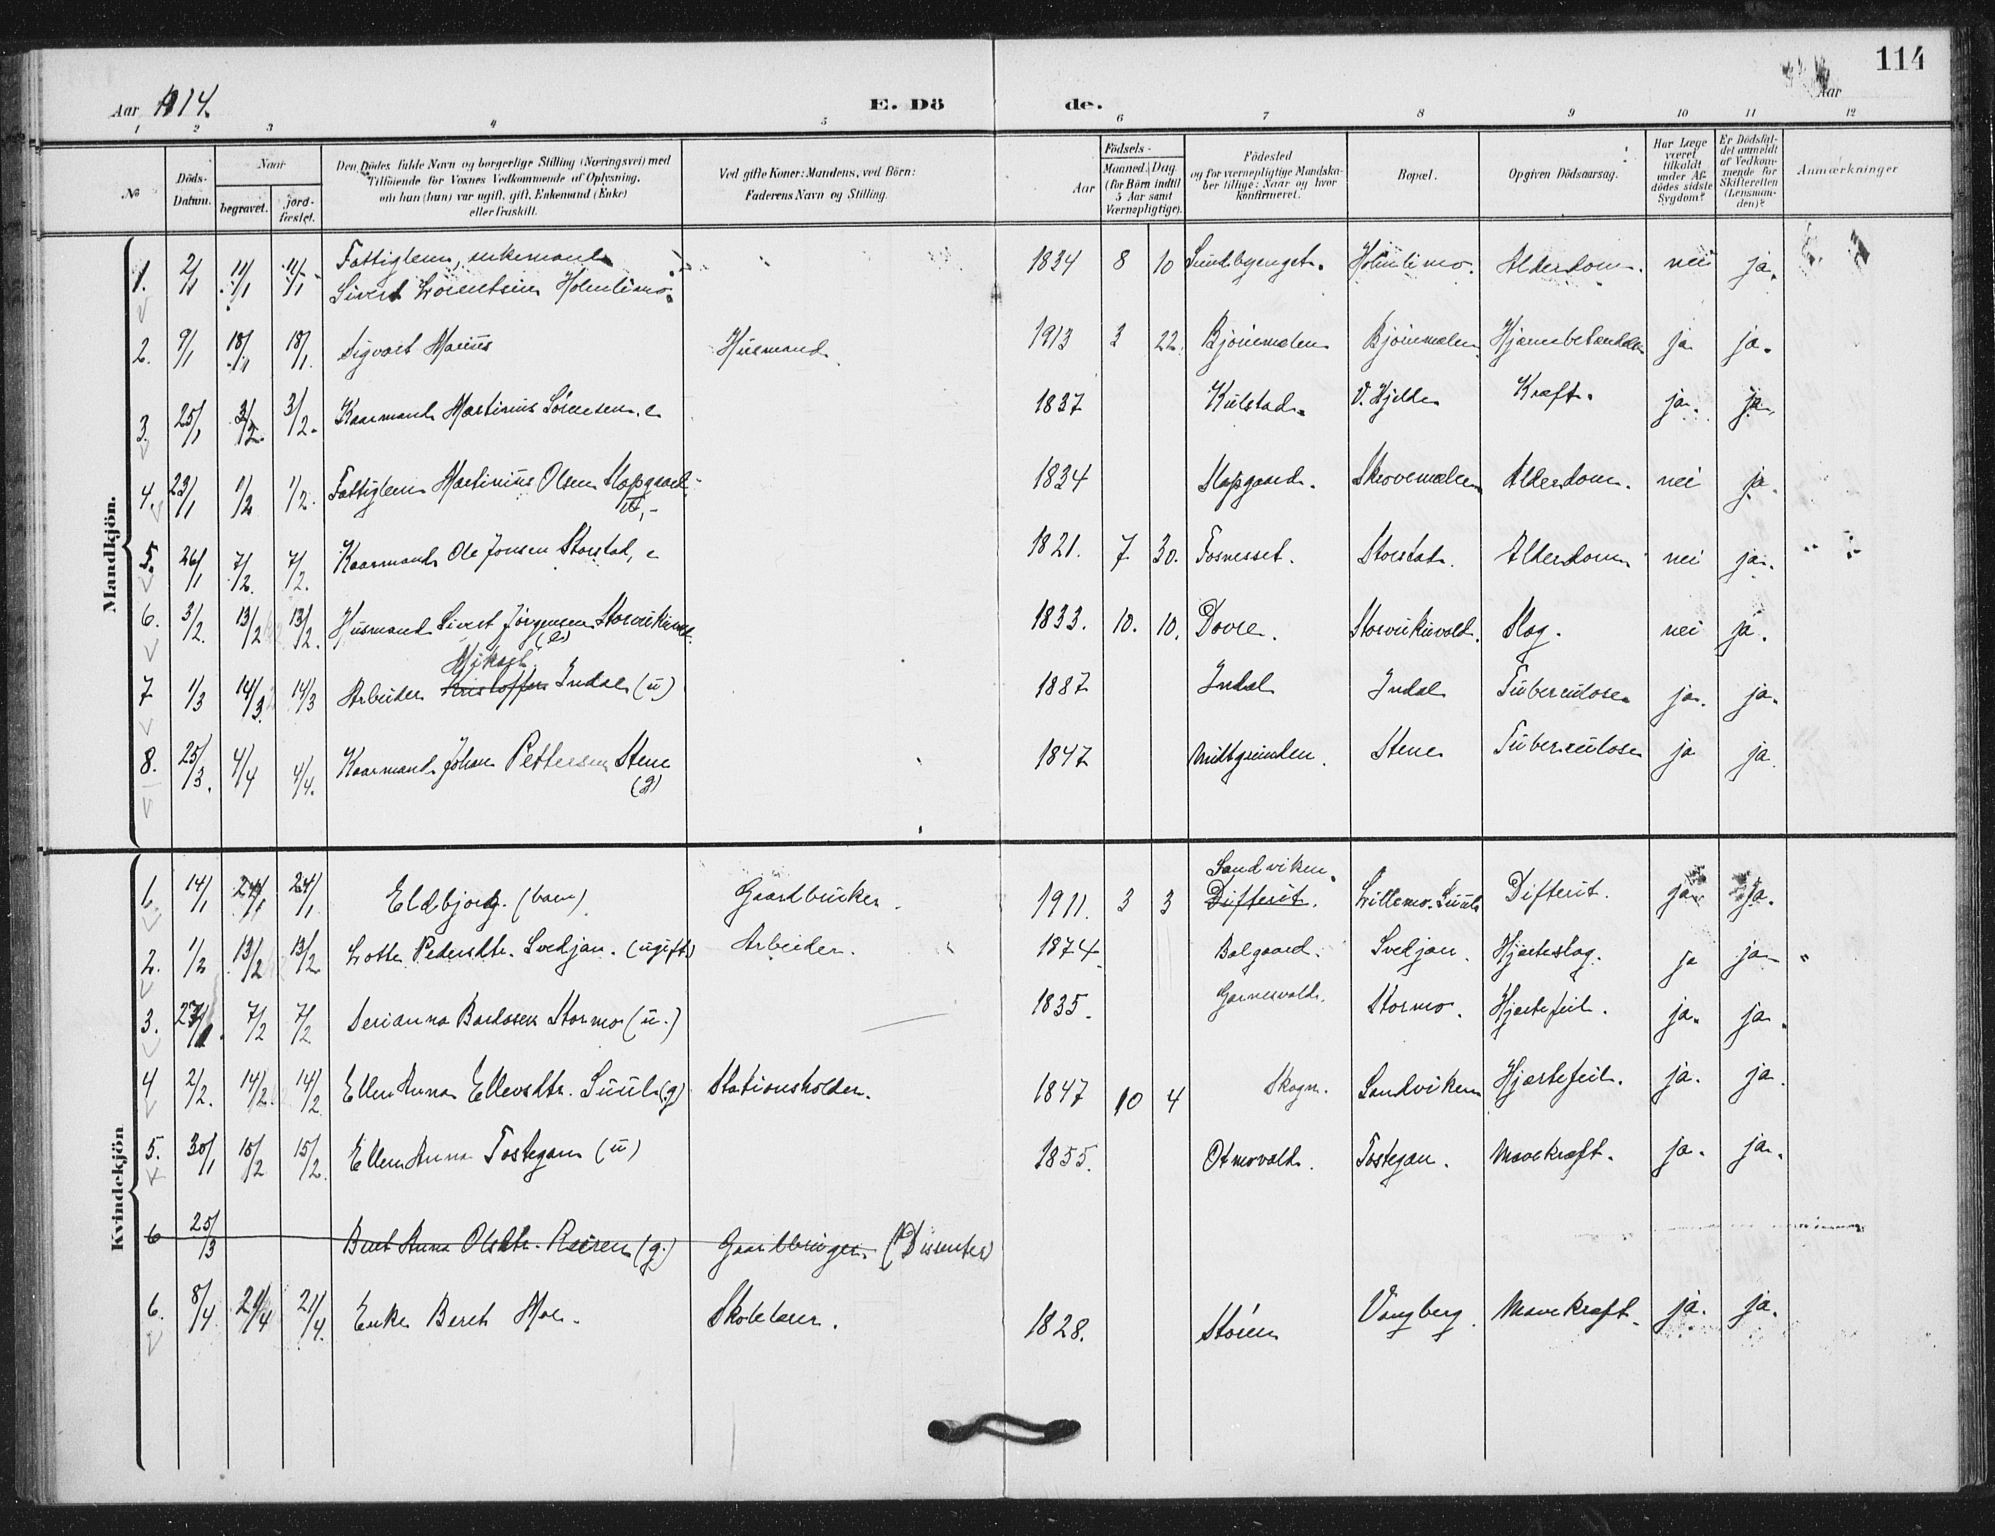 114
Aar 1914.
E. Döde.
Aar
1 2 3 4 5 6 7 8 9 10 11 12
No
Döds-Datum.
Naar
begravet.
jord-fæstet.
Den Dödes fulde Navn og borgerlige Stilling (Næringsvei) med
Tilföiende for Voxnes Vedkommende af Oplysning,
om han (hun) var ugift, gift, Enkemand (Enke)
eller fraskilt.
Ved gifte Koner: Mandens, ved Börn:
Faderens Navn og Stilling.
Födsels-
Aar
Maaned. Dag
(for Börn indtil
5 Aar samt
Værnepligtige).
Födested
og for værnepligtige Mandska-
ber tillige: Naar og hvor
Konfirmeret.
Bopæl.
Opgiven Dödsaarsag.
Har Læge
været
tilkaldt
under Af-
dödes sidste
Sygdom?
Er Dödsfal-
det anmeldt
af Vedkom-
mende for
Skifteretten
(Lensman-
den)?
Anmærkninger
Mandkjön.
1. 2/1 11/1 11/1 Fattiglem, enkemand 1834 8 10 Alderdom. nei ja.
Sivert
2. 9/1 18/1 18/1 Sigvart Marius Husmand 1913 3 22. ja ja.
3. 25/1 3/2. 3/2. Kaarmand Martinus Sörensen. e 1837 Kulstad. Kræft. ja. ja.
4. 23/1 1/2 1/2. Fattiglem Martinius Olsen Slapgaard 1834 Slapgaard. Alderdom. nei ja.
5. 26/1 7/2. 7/2. Kaarmand Ole Jonsen Storstad, e 1821. 7 30. Fosnesset. Storstad. Alderdom nei ja.
6. 3/2. 13/2 13/2. Husmand Sivert Jörgensen (e) 1833. 10. 10. Dovre. Slag. nei ja.
Mikael
7 1/3 14/3. 14/3 Arbeider Kristoffer Indal (u) 1887 Indal Indal Tuberculose ja. ja.
8. 25/3. 4/4 4/4. Kaarmand Johan Pettersen Stene 1847 Midtgrunden. Stene Tuberculose ja ja.
(g)
Kvindekjön
Sandviken.
1. 14/1 24/1 24/1 Eldbjorg. (barn) Gaardbruker. 1911. 3 3 Difterit. Lillemo. Suul Difterit. ja. ja.
2. 1/2 13/2 13/2 Lotte Pedersdtr. Svedjan. (ugift) Arbeider. 1874. Balgaard. Svedjan. Hjerteslag. ja ja.
3. 7/2 7/2 Stormo (u.) 1835. Garnesvald. Stormo. Hjertefeil. ja. ja.
4 2/2. 14/2. 14/2 Ellen Anna Ellevsdtr. Suul (g) Stationsholder. 1847 10 4 Skogn. Sandviken Hjertefeil. ja. ja.
5. 30/1 15/2 15/2. Ellen Anna Tostegan (u) 1855. Otmovald. Tostegan. Mavekræft. ja. ja.
6 25/3 Beret Anna Olsdtr. (g.) Gaardbruger. (Dissenter)
6. 8/4 21/4 21/4. Enke Beret Moe. Skolelærer. 1828. Stören Vangberg. Mavekræft. ja. ja.